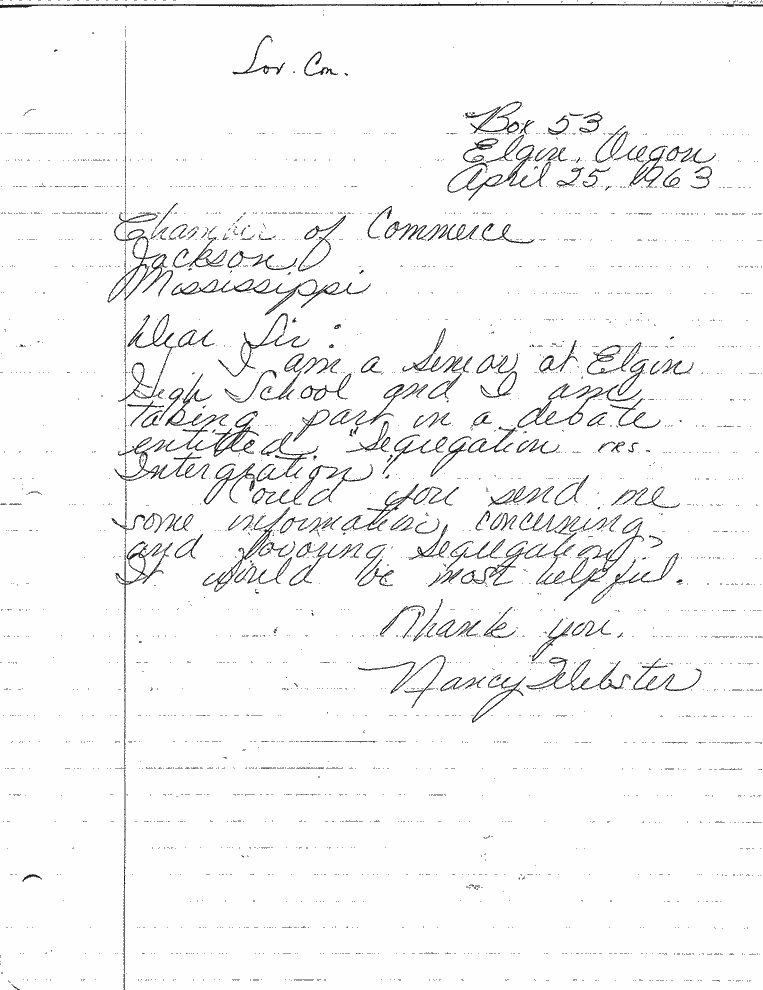 Sov. Com.
Box 53
Elgin, Oregon
April 25, 1963
Chamber of Commerce
Jackson
Mississippi
Dear Sir:
I am a Senior at Elgin
High School and I am
taking part in a debate
entitled "Segregation vs.
Intergration."
Could you send me
some information concerning
and favoring Segregation?
It would be most helpful.
Thank you,
Nancy Webster